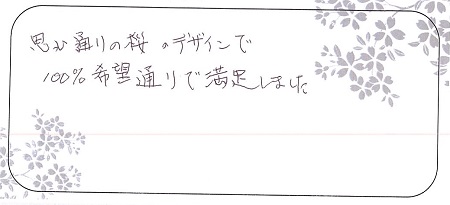 思い通りの桜のデザインで
100%希望通りで満足しました